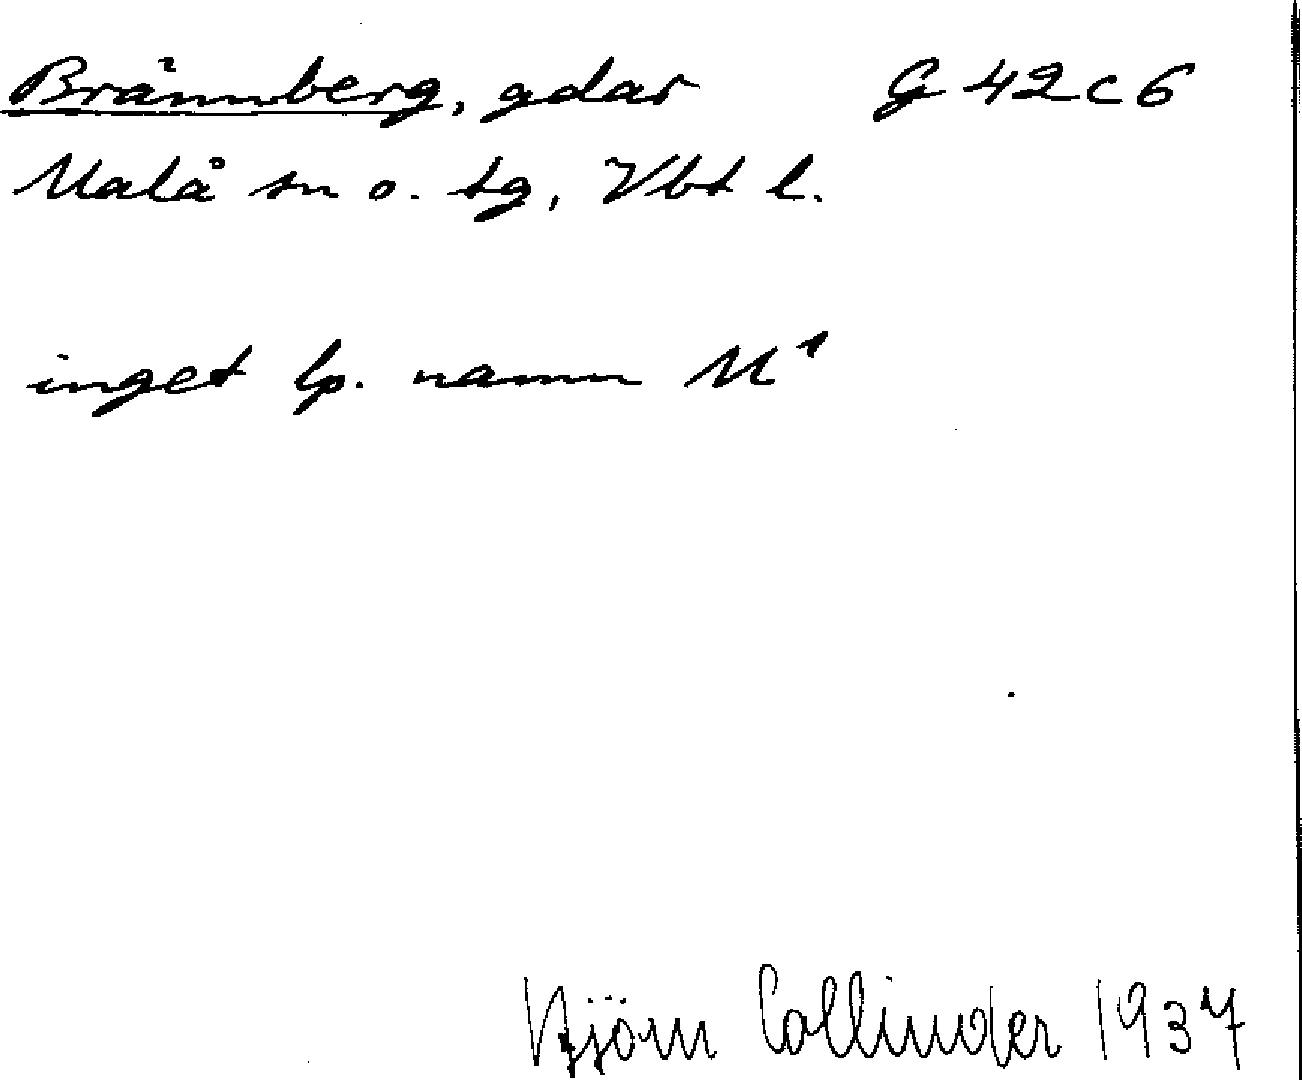 Brännberg, gdar G 42 c 6
Malå sn o. tg, Vbt l.
inget lp. namn M¹
Björn Collinder 1937